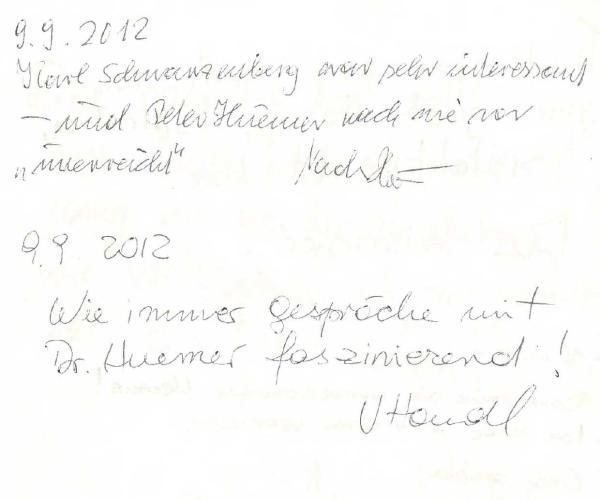 9.9.2012
Karl Schwarzenberg war sehr interessant
– und Peter Huemer nach wie vor
„unerreicht“
9.9 2012
Wie immer gespräche mit
Dr. Huemer faszinierend!